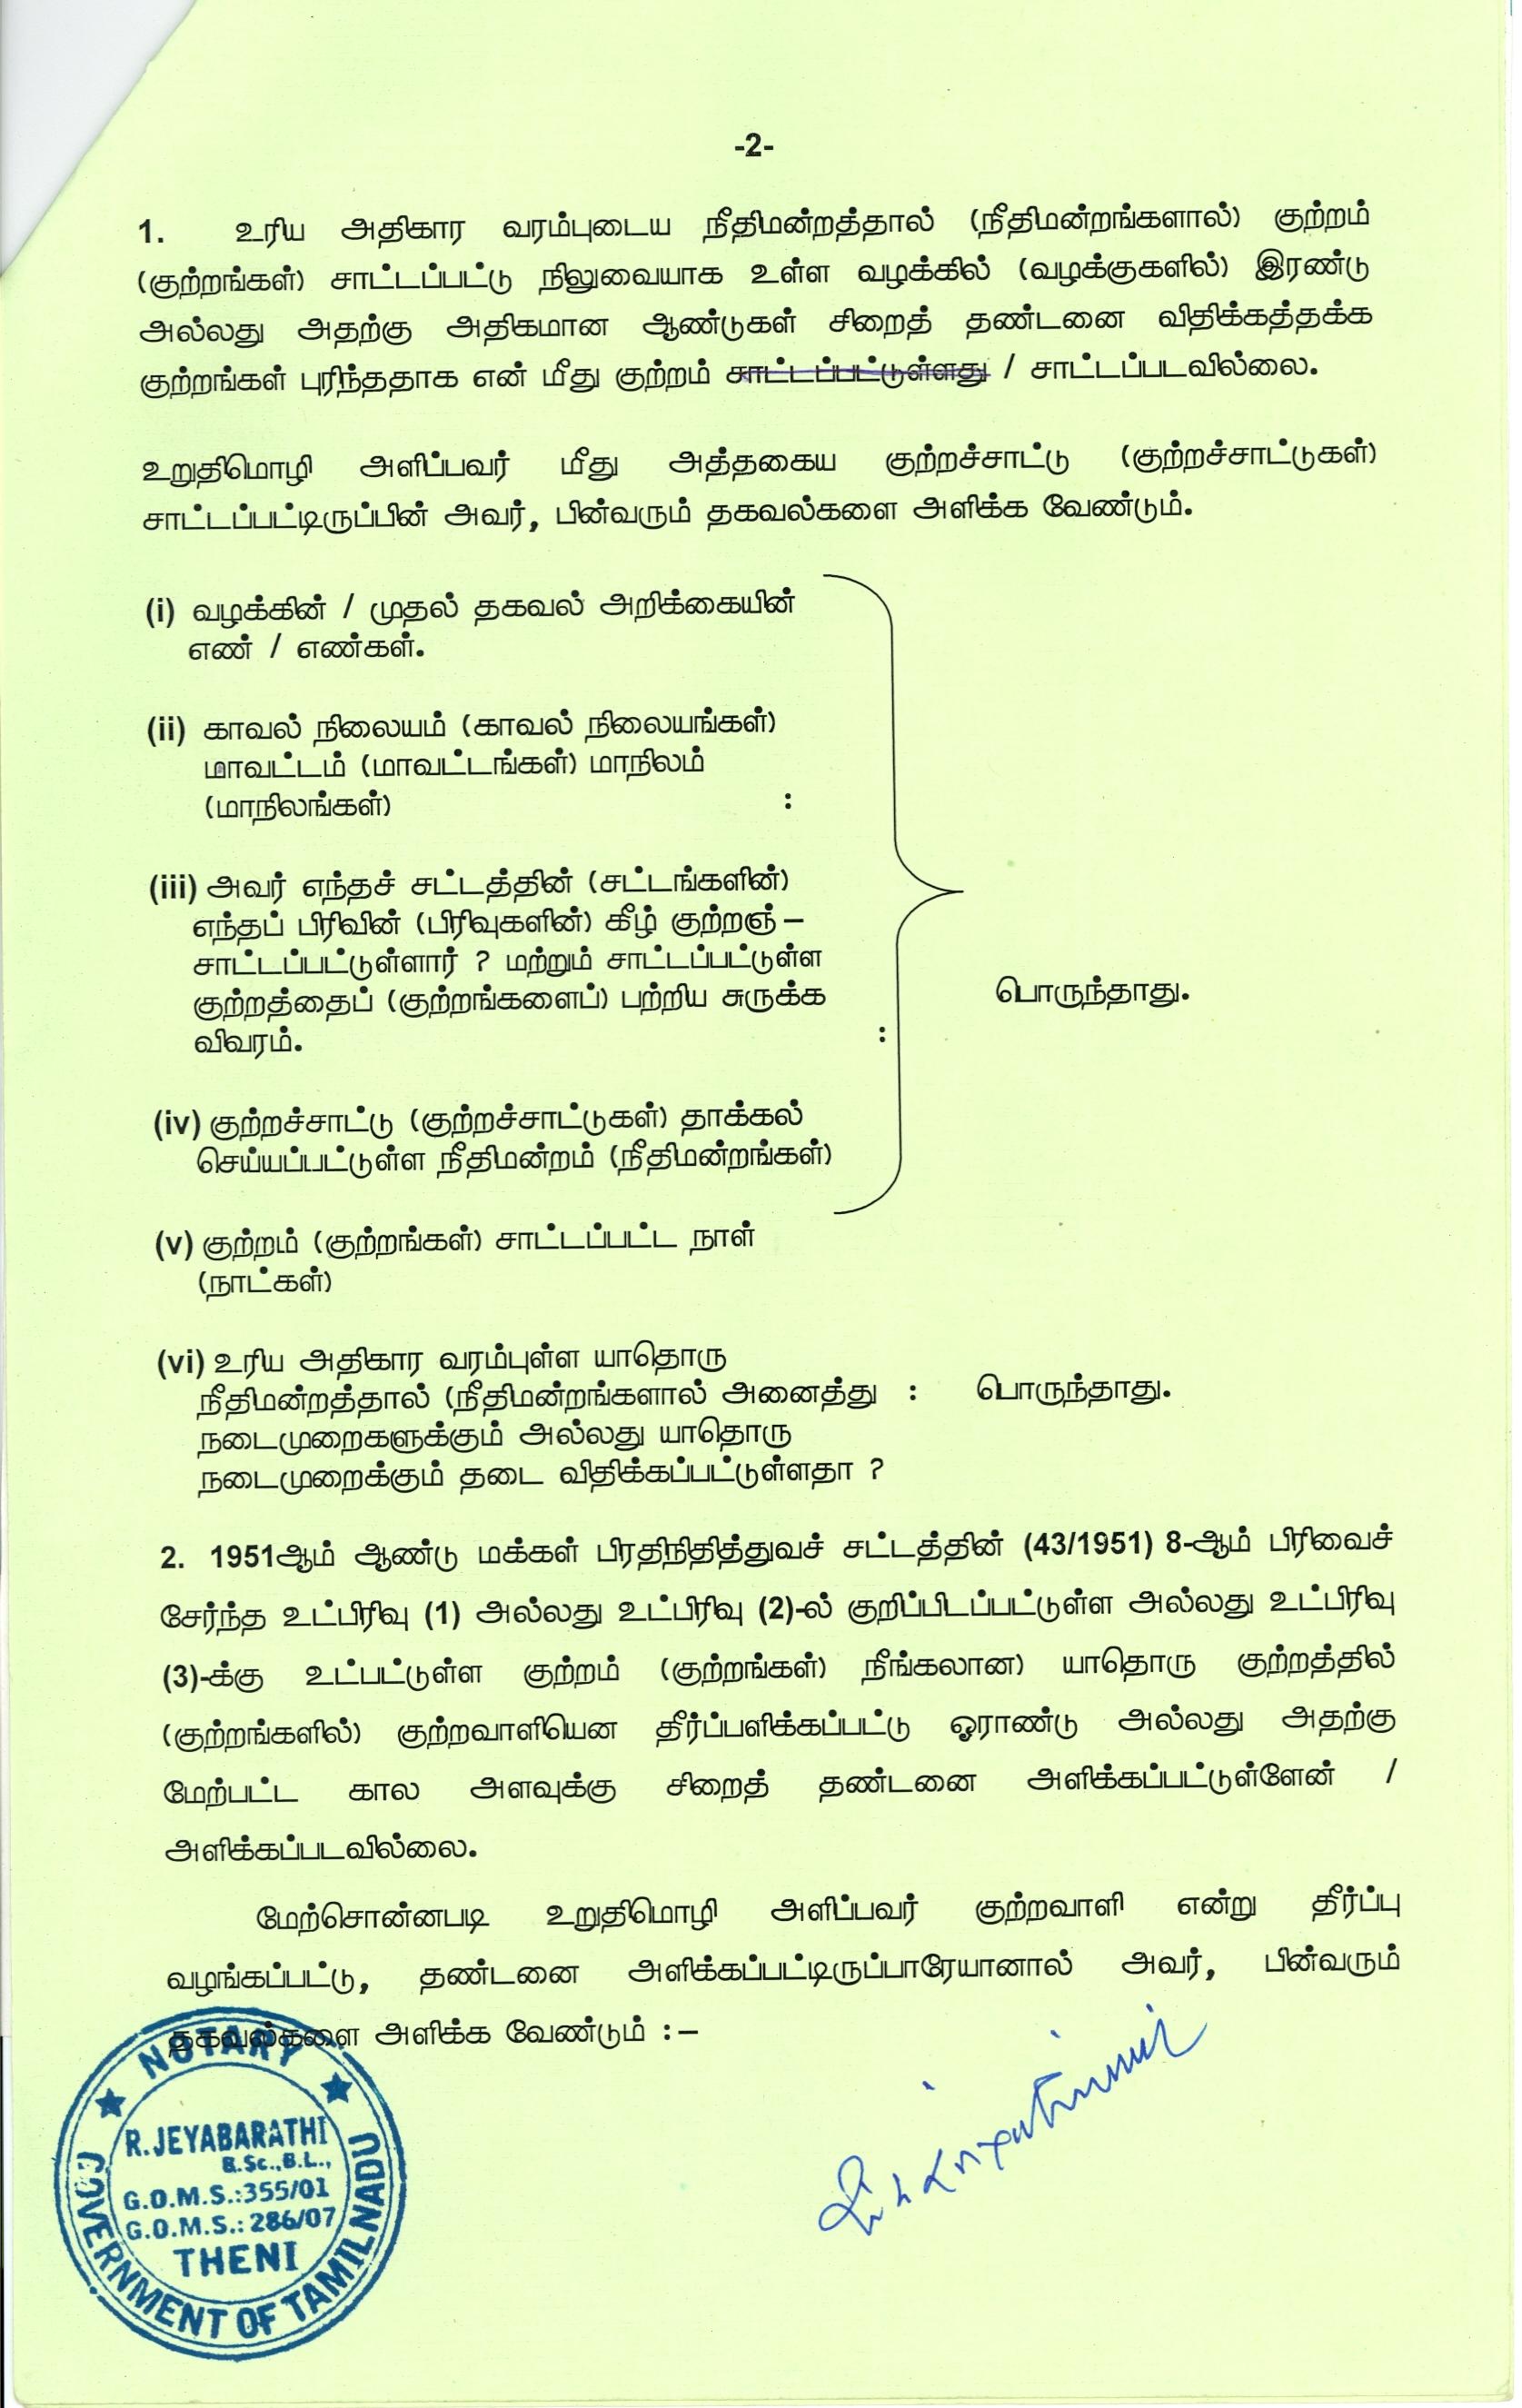 -2-
1. உரிய அதிகார வரம்புடைய நீதிமன்றத்தால் (நீதிமன்றங்களால்) குற்றம்
(குற்றங்கள்) சாட்டப்பட்டு நிலுவையாக உள்ள வழக்கில் (வழக்குகளில்) இரண்டு
அல்லது அதற்கு அதிகமான ஆண்டுகள் சிறைத் தண்டனை விதிக்கத்தக்க
குற்றங்கள் புரிந்ததாக என் மீது குற்றம் சாட்டப்பட்டுள்ளது / சாட்டப்படவில்லை.
உறுதிமொழி அளிப்பவர் மீது அத்தகைய குற்றச்சாட்டு (குற்றச்சாட்டுகள்)
சாட்டப்பட்டிருப்பின் அவர், பின்வரும் தகவல்களை அளிக்க வேண்டும்.
(i) வழக்கின் / முதல் தகவல் அறிக்கையின்
எண் / எண்கள்.
(ii) காவல் நிலையம் (காவல் நிலையங்கள்)
மாவட்டம் (மாவட்டங்கள்) மாநிலம்
(மாநிலங்கள்) :
(iii) அவர் எந்தச் சட்டத்தின் (சட்டங்களின்)
எந்தப் பிரிவின் (பிரிவுகளின்) கீழ் குற்றஞ் –
சாட்டப்பட்டுள்ளார் ? மற்றும் சாட்டப்பட்டுள்ள
குற்றத்தைப் (குற்றங்களைப்) பற்றிய சுருக்க
விவரம். :
பொருந்தாது.
(iv) குற்றச்சாட்டு (குற்றச்சாட்டுகள்) தாக்கல்
செய்யப்பட்டுள்ள நீதிமன்றம் (நீதிமன்றங்கள்)
(v) குற்றம் (குற்றங்கள்) சாட்டப்பட்ட நாள்
(நாட்கள்)
(vi) உரிய அதிகார வரம்புள்ள யாதொரு
நீதிமன்றத்தால் (நீதிமன்றங்களால் அனைத்து : பொருந்தாது.
நடைமுறைகளுக்கும் அல்லது யாதொரு
நடைமுறைக்கும் தடை விதிக்கப்பட்டுள்ளதா ?
2. 1951ஆம் ஆண்டு மக்கள் பிரதிநிதித்துவச் சட்டத்தின் (43/1951) 8-ஆம் பிரிவைச்
சேர்ந்த உட்பிரிவு (1) அல்லது உட்பிரிவு (2)-ல் குறிப்பிடப்பட்டுள்ள அல்லது உட்பிரிவு
(3)-க்கு உட்பட்டுள்ள குற்றம் (குற்றங்கள்) நீங்கலான) யாதொரு குற்றத்தில்
(குற்றங்களில்) குற்றவாளியென தீர்ப்பளிக்கப்பட்டு ஓராண்டு அல்லது அதற்கு
மேற்பட்ட கால அளவுக்கு சிறைத் தண்டனை அளிக்கப்பட்டுள்ளேன் /
அளிக்கப்படவில்லை.
மேற்சொன்னபடி உறுதிமொழி அளிப்பவர் குற்றவாளி என்று தீர்ப்பு
வழங்கப்பட்டு, தண்டனை அளிக்கப்பட்டிருப்பாரேயானால் அவர், பின்வரும்
தகவல்களை அளிக்க வேண்டும் :–
NOTARY
R.JEYABARATHI
B.Sc.,B.L.,
G.O.M.S.:355/01
G.O.M.S.: 286/07
THENI
GOVERNMENT OF TAMILNADU